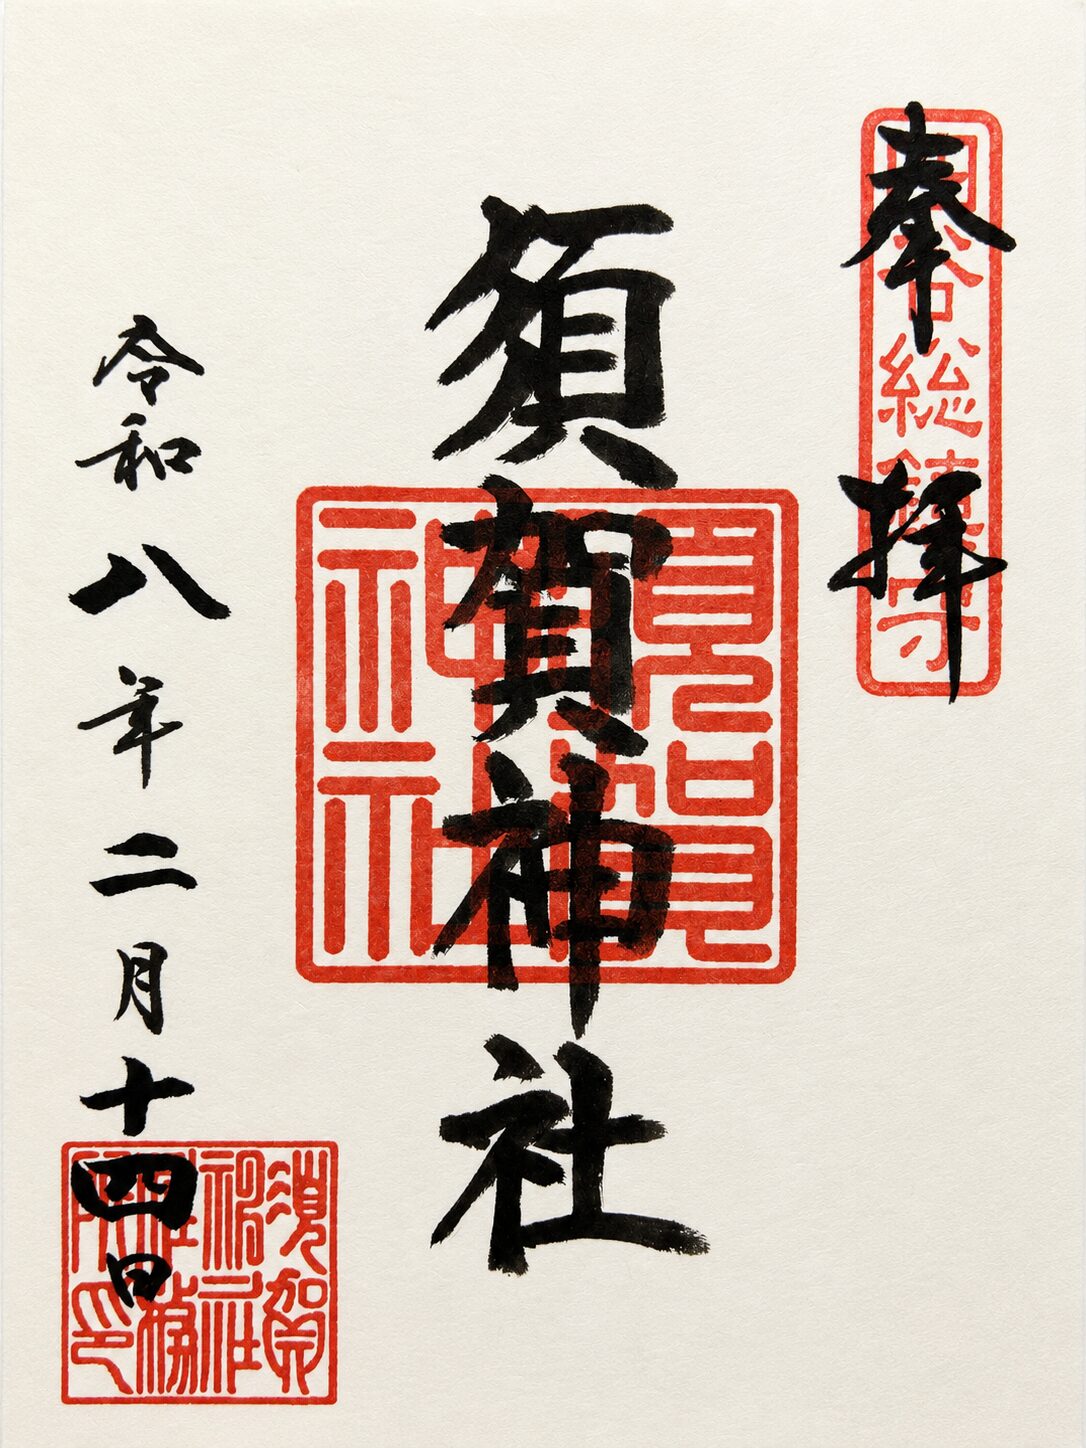 奉拝
四谷総鎮守
須賀神社
須賀神社
令和八年二月十四日
須賀神社社務所印